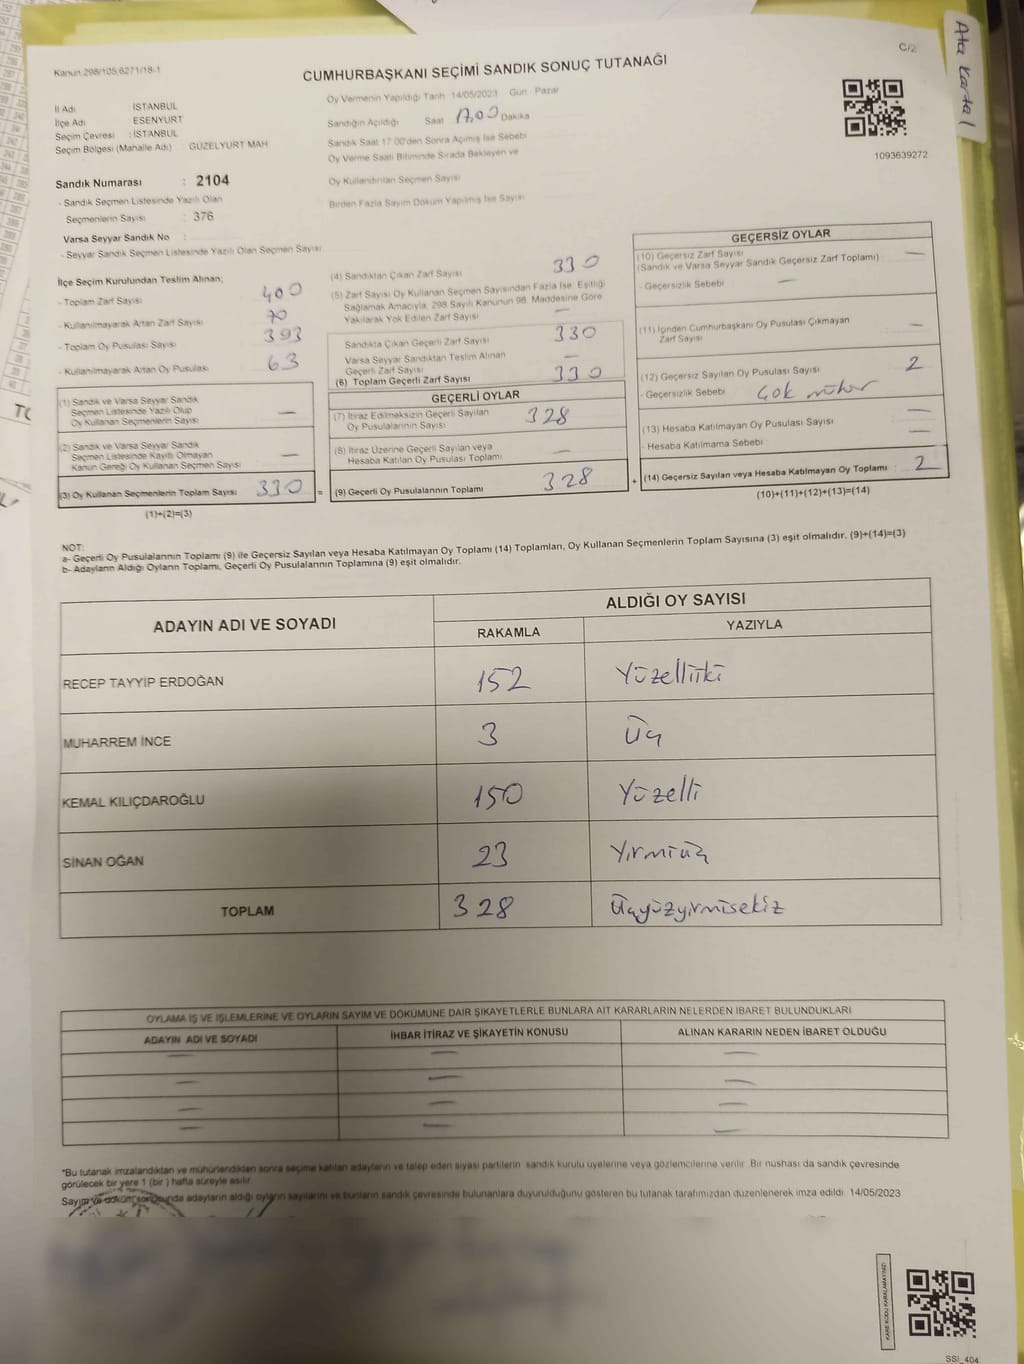 Ata Kartal
C/2
Kanun.298/105,6271/18-1
CUMHURBAŞKANI SEÇİMİ SANDIK SONUÇ TUTANAĞI
İl Adı : İSTANBUL
İlçe Adı : ESENYURT
Seçim Çevresi : İSTANBUL
Seçim Bölgesi (Mahalle Adı) : GÜZELYURT MAH
Sandık Numarası : 2104
- Sandık Seçmen Listesinde Yazılı Olan
Seçmenlerin Sayısı : 376
Varsa Seyyar Sandık No :
- Seyyar Sandık Seçmen Listesinde Yazılı Olan Seçmen Sayısı
Oy Vermenin Yapıldığı Tarih 14/05/2023 Gün : Pazar
Sandığın Açıldığı Saat 17.00 Dakika
Sandık Saat 17:00'den Sonra Açılmış İse Sebebi
Oy Verme Saati Bitiminde Sırada Bekleyen ve
Oy Kullandırılan Seçmen Sayısı
Birden Fazla Sayım Döküm Yapılmış İse Sayısı
1093639272
İlçe Seçim Kurulundan Teslim Alınan;
- Toplam Zarf Sayısı 400
- Kullanılmayarak Artan Zarf Sayısı 70
- Toplam Oy Pusulası Sayısı 393
- Kullanılmayarak Artan Oy Pusulası 63
(1) Sandık ve Varsa Seyyar Sandık
Seçmen Listesinde Yazılı Olup
Oy Kullanan Seçmenlerin Sayısı —
(2) Sandık ve Varsa Seyyar Sandık
Seçmen Listesinde Kayıtlı Olmayan
Kanun Gereği Oy Kullanan Seçmen Sayısı —
(3) Oy Kullanan Seçmenlerin Toplam Sayısı 330
(1)+(2)=(3)
=
(4) Sandıktan Çıkan Zarf Sayısı 330
(5) Zarf Sayısı Oy Kullanan Seçmen Sayısından Fazla İse, Eşitliği
Sağlamak Amacıyla, 298 Sayılı Kanunun 98. Maddesine Göre
Yakılarak Yok Edilen Zarf Sayısı —
Sandıkta Çıkan Geçerli Zarf Sayısı 330
Varsa Seyyar Sandıktan Teslim Alınan
Geçerli Zarf Sayısı —
(6) Toplam Geçerli Zarf Sayısı 330
GEÇERLİ OYLAR
(7) İtiraz Edilmeksizin Geçerli Sayılan
Oy Pusulalarının Sayısı 328
(8) İtiraz Üzerine Geçerli Sayılan veya
Hesaba Katılan Oy Pusulası Toplamı —
(9) Geçerli Oy Pusulalarının Toplamı 328
+
GEÇERSİZ OYLAR
(10) Geçersiz Zarf Sayısı —
(Sandık ve Varsa Seyyar Sandık Geçersiz Zarf Toplamı)
- Geçersizlik Sebebi —
(11) İçinden Cumhurbaşkanı Oy Pusulası Çıkmayan
Zarf Sayısı —
(12) Geçersiz Sayılan Oy Pusulası Sayısı 2
- Geçersizlik Sebebi çok mühür
(13) Hesaba Katılmayan Oy Pusulası Sayısı —
- Hesaba Katılmama Sebebi —
(14) Geçersiz Sayılan veya Hesaba Katılmayan Oy Toplamı : 2
(10)+(11)+(12)+(13)=(14)
NOT:
a- Geçerli Oy Pusulalarının Toplamı (9) ile Geçersiz Sayılan veya Hesaba Katılmayan Oy Toplamı (14) Toplamları, Oy Kullanan Seçmenlerin Toplam Sayısına (3) eşit olmalıdır. (9)+(14)=(3)
b- Adayların Aldığı Oyların Toplamı, Geçerli Oy Pusulalarının Toplamına (9) eşit olmalıdır.
ADAYIN ADI VE SOYADI
ALDIĞI OY SAYISI
RAKAMLA YAZIYLA
RECEP TAYYIP ERDOĞAN 152 Yüzelliiki
MUHARREM İNCE 3 Üç
KEMAL KILIÇDAROĞLU 150 Yüzelli
SİNAN OĞAN 23 Yirmiüç
TOPLAM 328 Üçyüzyirmisekiz
OYLAMA İŞ VE İŞLEMLERİNE VE OYLARIN SAYIM VE DÖKÜMÜNE DAİR ŞİKAYETLERLE BUNLARA AİT KARARLARIN NELERDEN İBARET BULUNDUKLARI
ADAYIN ADI VE SOYADI İHBAR İTİRAZ VE ŞİKAYETİN KONUSU ALINAN KARARIN NEDEN İBARET OLDUĞU
— — —
— — —
— — —
— — —
*Bu tutanak imzalandıktan ve mühürlendikten sonra seçime katılan adayların ve talep eden siyasi partilerin sandık kurulu üyelerine veya gözlemcilerine verilir. Bir nüshası da sandık çevresinde
görülecek bir yere 1 (bir ) hafta süreyle asılır.
Sayım ve döküm sonucunda adayların aldığı oyların sayılarını ve bunların sandık çevresinde bulunanlara duyurulduğunu gösteren bu tutanak tarafımızdan düzenlenerek imza edildi. 14/05/2023
KARE KODU KARALAMAYINIZ!
SSI_404